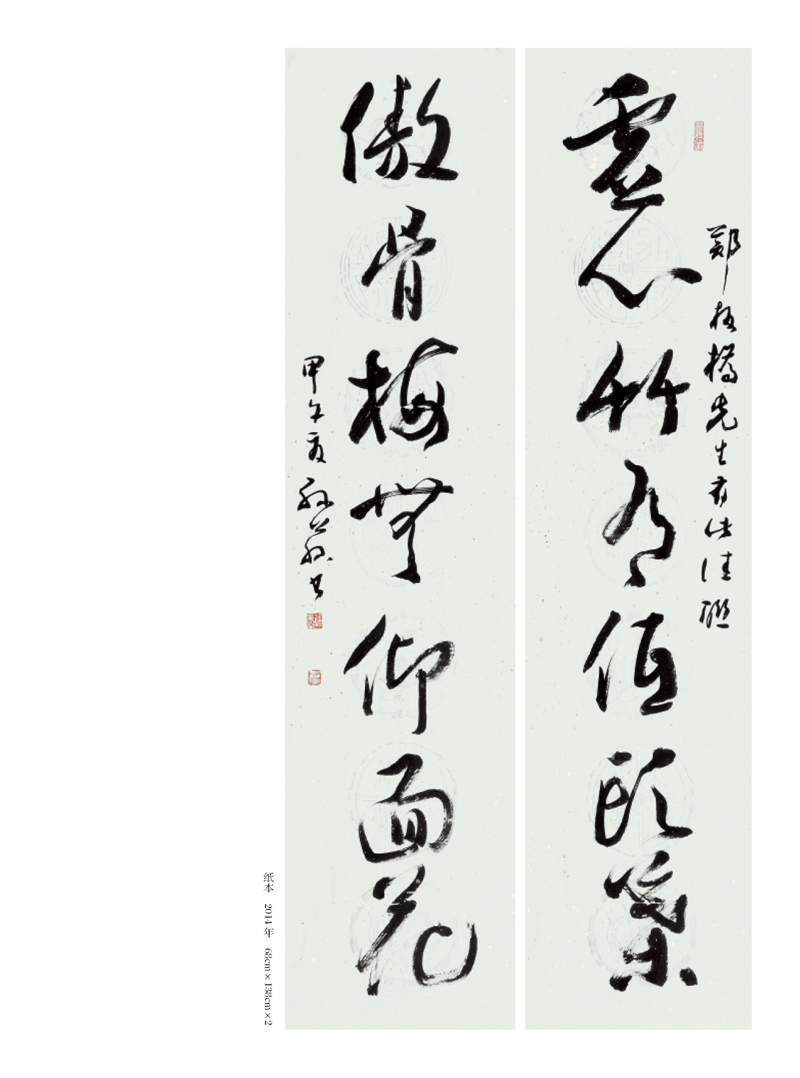 鄭板橋先生有此佳聯
虛心竹有低頭葉
傲骨梅無仰面花
甲午夏
纸本 2014年 68cm×138cm×2